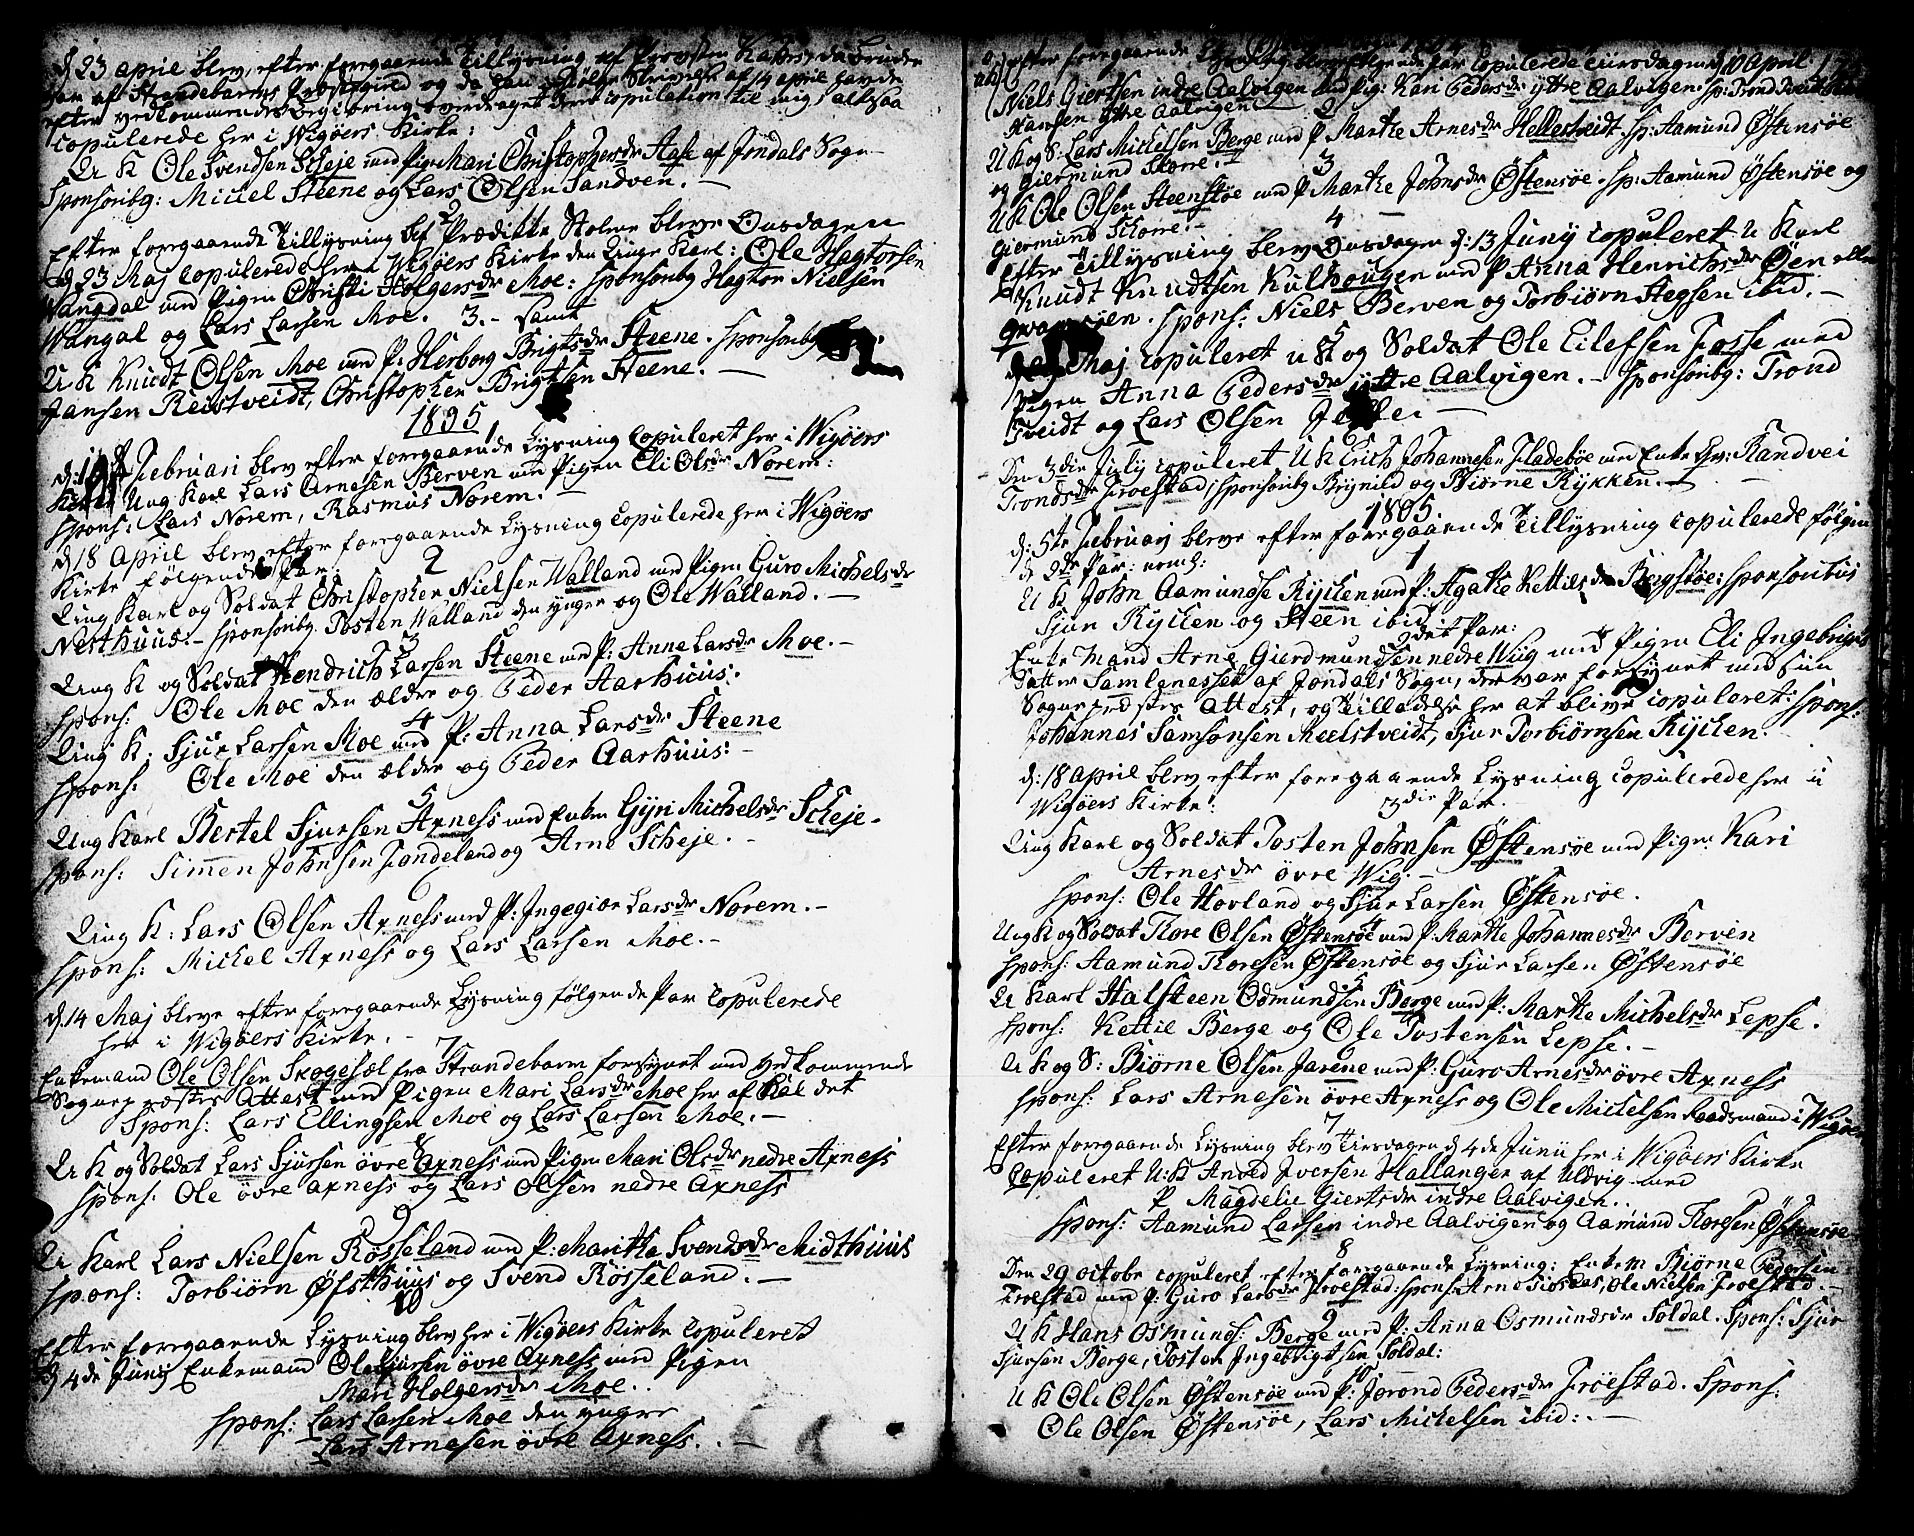 d. 23 april blev, efter foregaaende Tillysning af Provsten
par af Strandebarms Præstegield og da han i følge Skrivelse af 14 april havde
efter vedkommendes Begiæring overdraget dem copulation til mig, altsaa
copulerede her i Wigøers Kirke:
U K Ole Svendsen Scheje med Pigen Mari Christophersdr Aase af Jondals Sogn
Sponsoribg: Michel Steene og Lars Olsen Sandven. —
2
Efter foregaaende Tillysning af Prædike Stolene bleve Onsdagen
d 23 Maj copulerede her i Wigøers Kirke den Unge Karl: Ole Hagtorsen
Wangdal med Pigen Christi Holgersdr Moe: Sponsoribg Hagtor Nielsen
Wangal og Lars Larsen Moe. 3. – samt
U K Knudt Olsen Moe med P: Herborg Brigtsdr Steene. Sponsoribg
Jansen Reistveidt, Christopher Brigtsen Steene. —
1805
1
Februari blev efter foregaaende Lysning copuleret her i Wigøers
Kirke Ung Karl Lars Arnesen Berven med Pigen Eli Olsdr Norem:
Spons: Lars Norem, Rasmus Norem. —
d 18 April blev efter foregaaende Lysning copulerede her i Wigøers
Kirke følgende Par:
2
Ung Karl og Soldat Christopher Nielsen Walland med Pigen Guro Michelsdr
Nesthuus. – Sponsoribg. Tosten Walland den yngre og Ole Walland. —
3
Ung K og Soldat Hendrich Larsen Steene med P: Anne Larsdr Moe. –
Spons: Ole Moe den ældre og Peder Aarhuus:
4
Ung K: Sjur Larsen Moe med P: Anna Larsdr Steene
Spons: Ole Moe den ældre og Peder Aarhuus: –
5
Ung Karl Bertel Sjursen Axness med Enken Gyri Michelsdr Scheje.
Spons: Simen Johnsen Tondeland og Arne Scheje. –
6
Ung K: Lars Olsen Axness med P: Ingegiær Larsdr Norem. –
Spons: Michel Axness og Lars Larsen Moe. –
d. 14 Maj bleve efter foregaaende Lysning følgende Par copulerede
her i Wigøers Kirke. –
7
Enkemand Ole Olsen Skogesæl fra Strandebarm forsynet med vedkommende
Sogneprestes Attest med Pigen Mari Larsdr Moe her af Kaldet
Spons: Lars Ellingsen Moe og Lars Larsen Moe. –
8
U K og Soldat Lars Sjursen øvre Axness med Pigen Mari Olsdr nedre Axness
Spons: Ole øvre axness og Lars Olsen nedre Axness
9
U Karl Lars Nielsen Røsseland med P: Maritha Svendsdr Midthuus
Spons: Torbiørn Øfsthuus og Svend Røsseland. —
10
Efter foregaaende Lysning blev her i Wigøers Kirke copuleret
d 4de Junij Enkemand Ole Sjursen øvre Axness med Pigen
Mari Holgersdr Moe..
Spons: Lars Larsen Moe den yngre
Lars Arnesen øvre Axness. . —
efter foregaaende copulerede Tiirsdagen d 10 April
Niels Giertsen indre Aalvigen med Pig: Kari Pedersdr ydtre Aalvigen. Sp: Trond Tveidt
Hansen ydtre Aalvigen
2
U K og S: Lars Michelsen Berge med P Martha Arnesdr Hellestveidt. Sp: Aamund Østensøe
og Giermund Skore. –
3
U K Ole Olsen Steenstøe med P. Martha Johnsdr Østensøe. Sp: Aamund Østensøe og
Giermund Skore. –
4
Efter Tillysning blev Onsdagen d: 13 Junij copuleret U Karl
Knudt Knudtsen Kulhougen med P Anna Henrichsdr Øen
Spons: Niels Berven og Torbiørn Stegsen ibid. –
5
Maj copuleret U K og Soldat Ole Eilefsen Fosse med
Pigen Anna Pedersdr ydtre Aalvigen. – Sponsoribg: Trond
Tveidt og Lars Olsen —
6
Den 3die Julij copuleret U K Erich Johannesen Fladebøe med Enke Randvei
Trondsdr Froestad, Sponsoribg Brynild og Biørne Rykken. —
1805.
d: 5te Februarj bleve efter foregaaende Tillysning copulerede følgen
de 2de Par: neml:
1
U K John Aamundse Rykken med P: Agatha Kettilsdr Bergstøe: Sponsoribus
Sjur Rykken og Steen ibid.
2det Par:
Enke Mand Arne Gierdmundsen nedre Wiig med Pigen Eli Ingebrigts
Datter Samlenesset af Jondals Sogn, der var forsynet med sin
Sognepræstes Attest, og Tilladelse her at blive copuleret: Spons:
Johannes Samsonsen Meelstveidt, Sjur Torbiørnsen Rykken.
d: 18 April blev efter foregaaende Lysning copulerede her i
Wigøers Kirke:
3die Par.
Ung Karl og Soldat Tosten Johnsen Østensøe med Pigen Kari
Arnesdr øvre Wig. –
Spons: Ole Hovland og Sjur Larsen Østensøe.
4
Ung K og Soldat Tore Olsen Østensøe med P: Martha Johannesdr Berven
Spons: Aamund Toresen Østensøe og Sjur Larsen Østensøe
5
U Karl Halsteen Odmundsen Berge med P: Martha Michelsdr Lepse.
Spons: Kettil Berge og Ole Tostensen Lepse. –
6
U K og S: Biørne Olsen Jarene med P: Guro Arnesdr øvre Axness
Spons: Lars Arnesen øvre Axness og Ole Michelsen Raadsmand i Wigøer
7
Efter foregaaende Lysning blev Tirsdagen d 4de Junii her i Wigøers Kirke
Copuleret U: K Anved Iversen Hallanger af Uldvig med
P Magdeli Giertsdr indre Aalvigen.
Spons: Aamund Larsen indre Aalvigen og Aamund Toresen Østensøe
8
Den 29 octobr copuleret efter foregaaende Lysning: Enkem Biørne Pedersen
Froestad med P: Guro Larsdr Froestad: Spons: Arne Tiosaas, Ole Nielsen Froestad. –
9
U K Hans Osmunds: Berge med P: Anna Osmundsdr Soldal. Spons: Sjur
Sjursen Berge, Tosten Ingebrigtsen Soldal:
10
U K Ole Olsen Østensøe med P: Jorond Pedersdr Froestad. Spons:
Ole Olsen Østensøe, Lars Michelsen ibid: . —